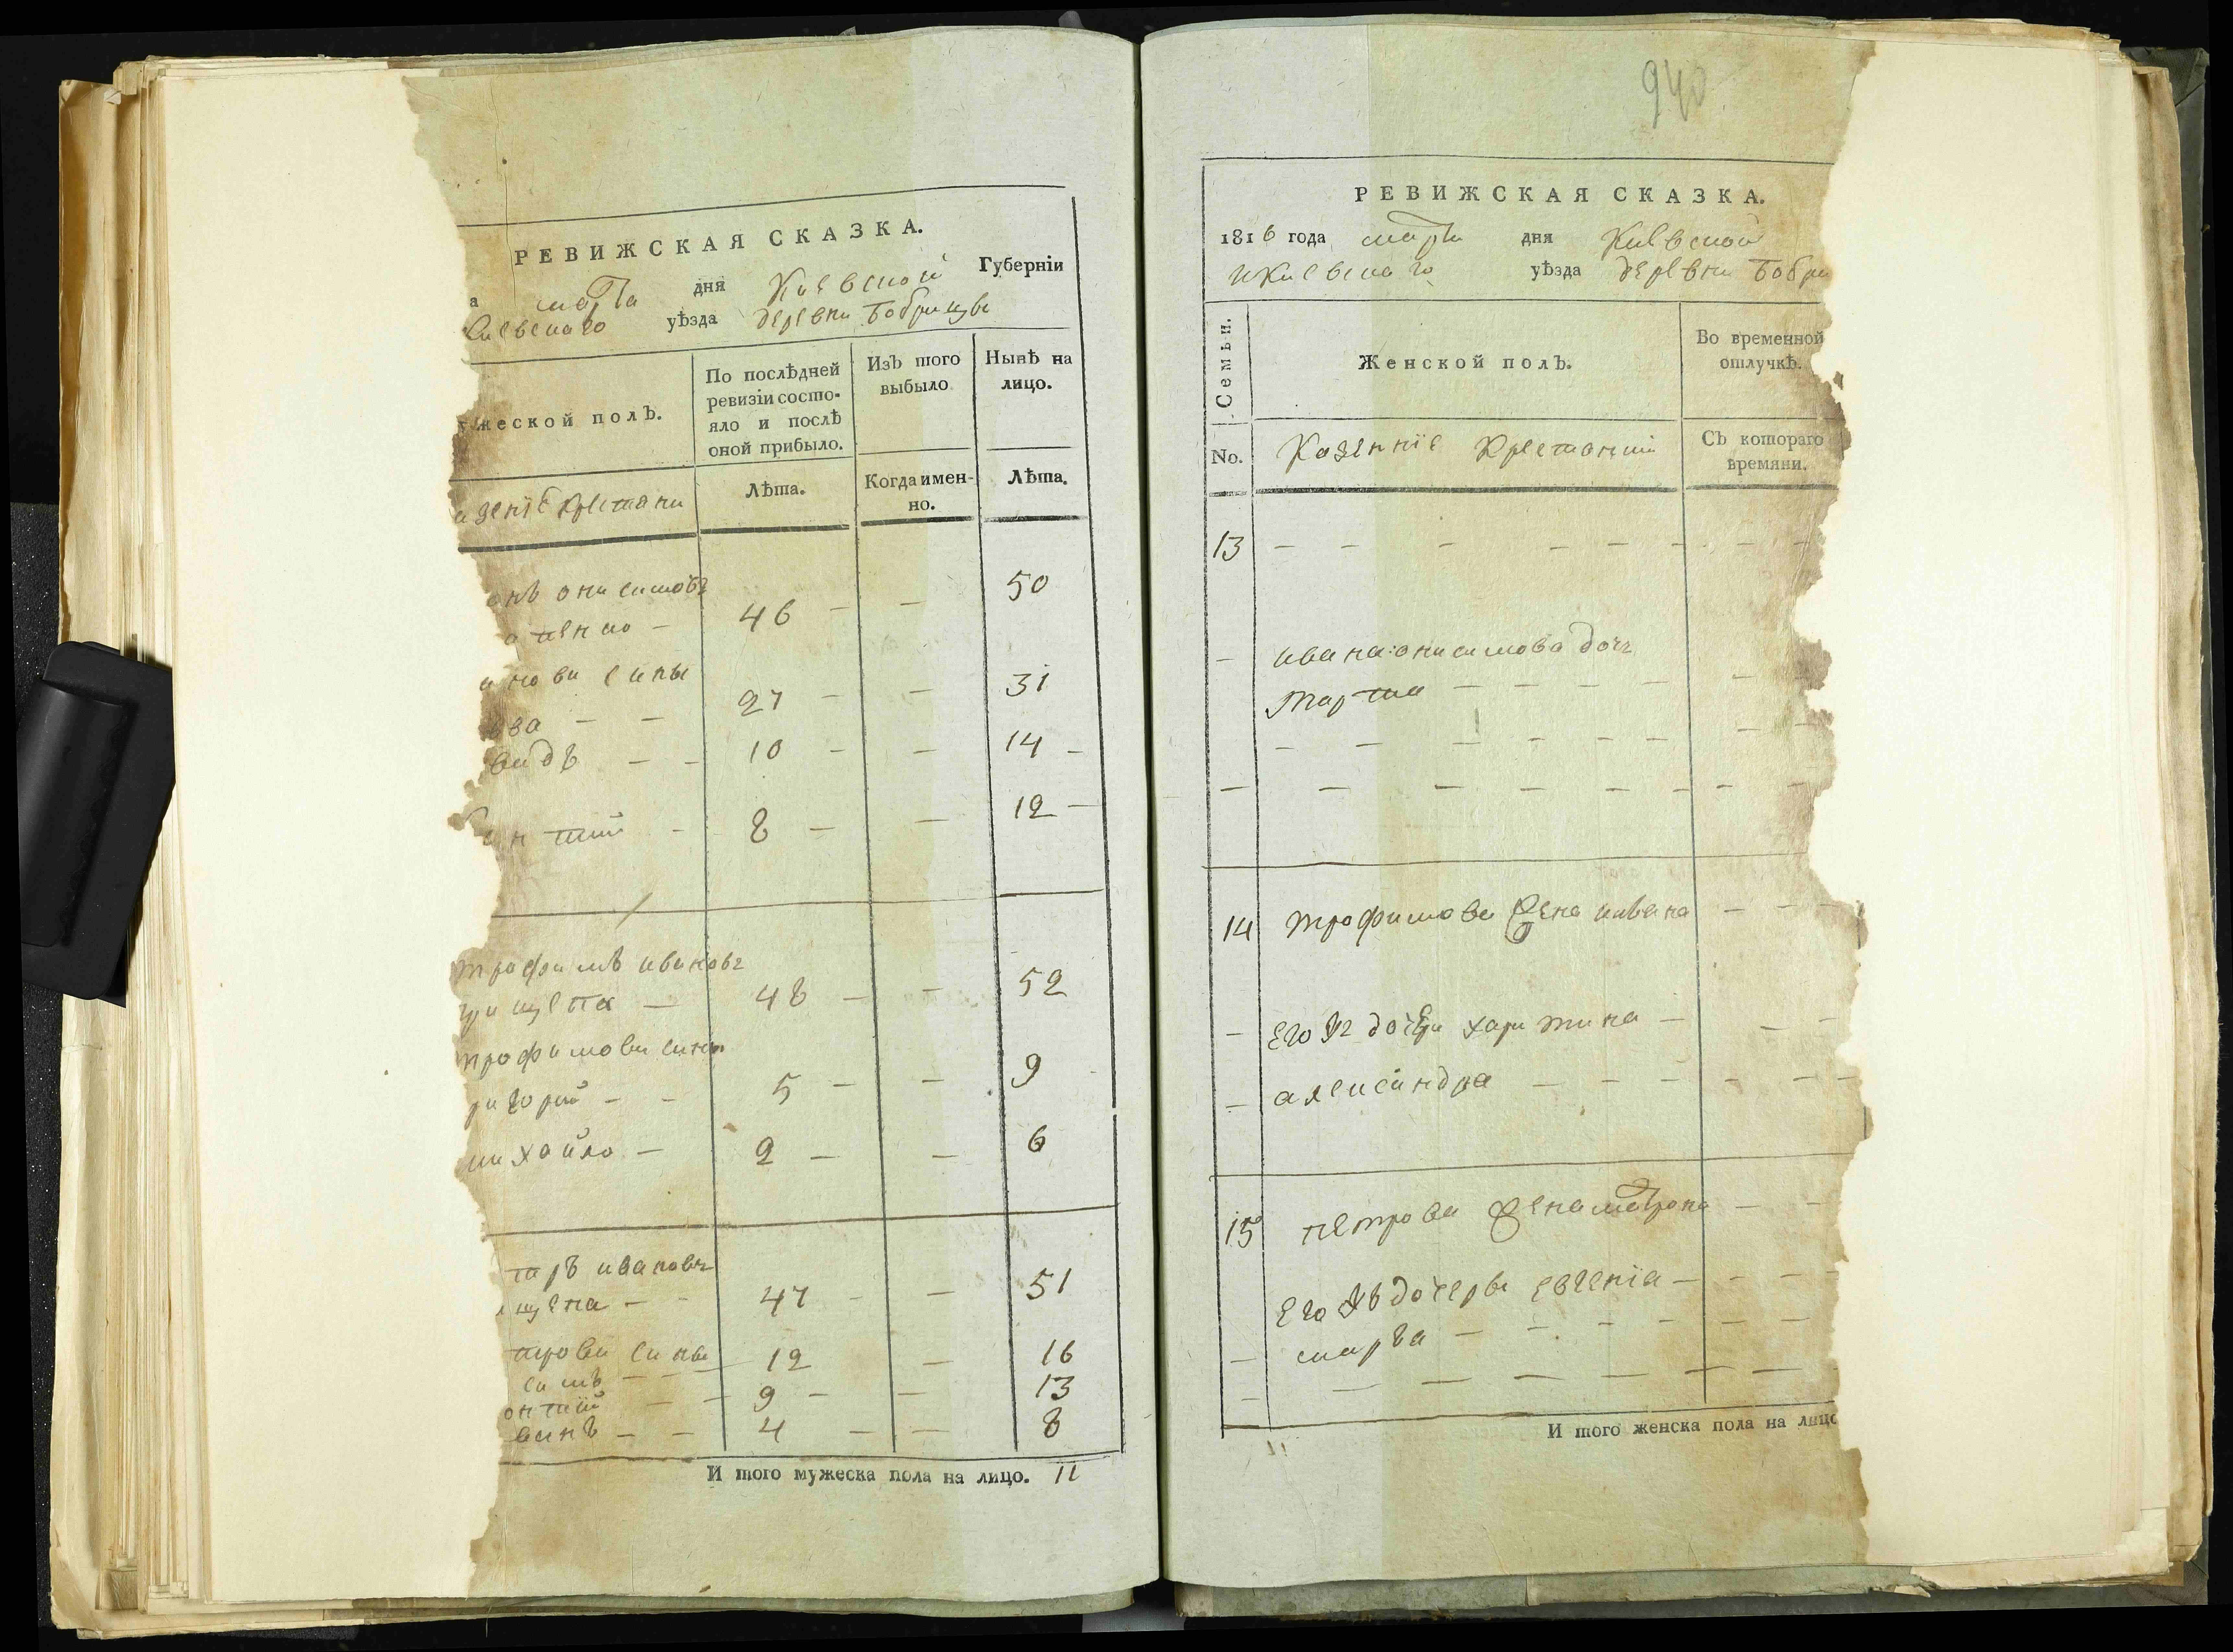 РЕВИЖСКАЯ СКАЗКА.
а марта дня Киевской Губерніи
Киевскаго уѣзда деревни Бобрицы
жеской полЪ.
По послѣдней ревизіи состояло и послѣ оной прибыло.
ИзЪ того выбыло
Нынѣ на лицо.
азеніе крестяни
Лѣта.
Когда именно.
Лѣта.
анъ онисимовъ
оценко — 46 — — 50
анови сины
ва — — 27 — — 31
видъ — — 10 — — 14 —
ентий — 8 — — 12 —
трофимъ ивановъ
рищепа — 48 — — 52
трофимови сины
ригорий — — 5 — — 9
михайло — 2 — — 6
тръ ивановъ
ищепа — — 47 — — 51
трови сины 12 — 16
симъ — — —
онтий — — 9 — — 13
ванъ — — 4 — — 8
И того мужеска пола на лицо. 11
940
РЕВИЖСКАЯ СКАЗКА.
1816 года марта дня Киевской
Киевскаго уѣзда деревни Бобри
Семьи.
Женской полЪ.
Во временной отлучкѣ.
No.
Казенніе Крестянки
СЪ котораго времяни.
13 — — — — — — — —
— ивана онисимова дочъ
марта — — — — — —
— — — — — — — —
— — — — — — — —
14 трофимова жена ивана — —
— Его жъ дочери харитина — — —
— александра — — — — — —
15 петрова жена матрона — —
Его жъ дочери евгенія — — — —
— марѳа — — — — — —
— — — — — — —
И того женска пола на лицо